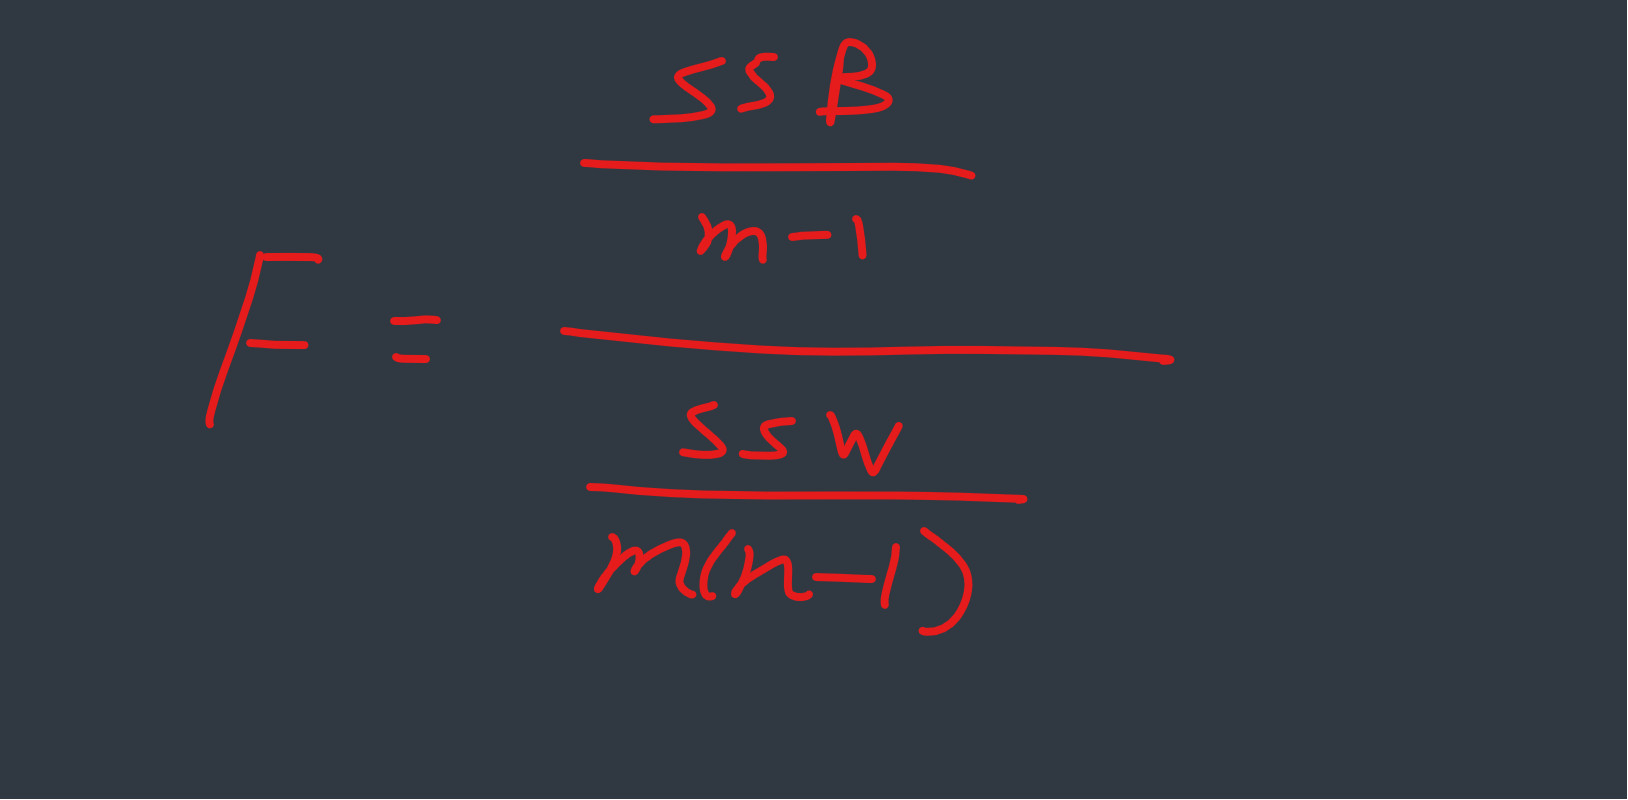 SSB
m-1
F =
SSW
m(n-1)